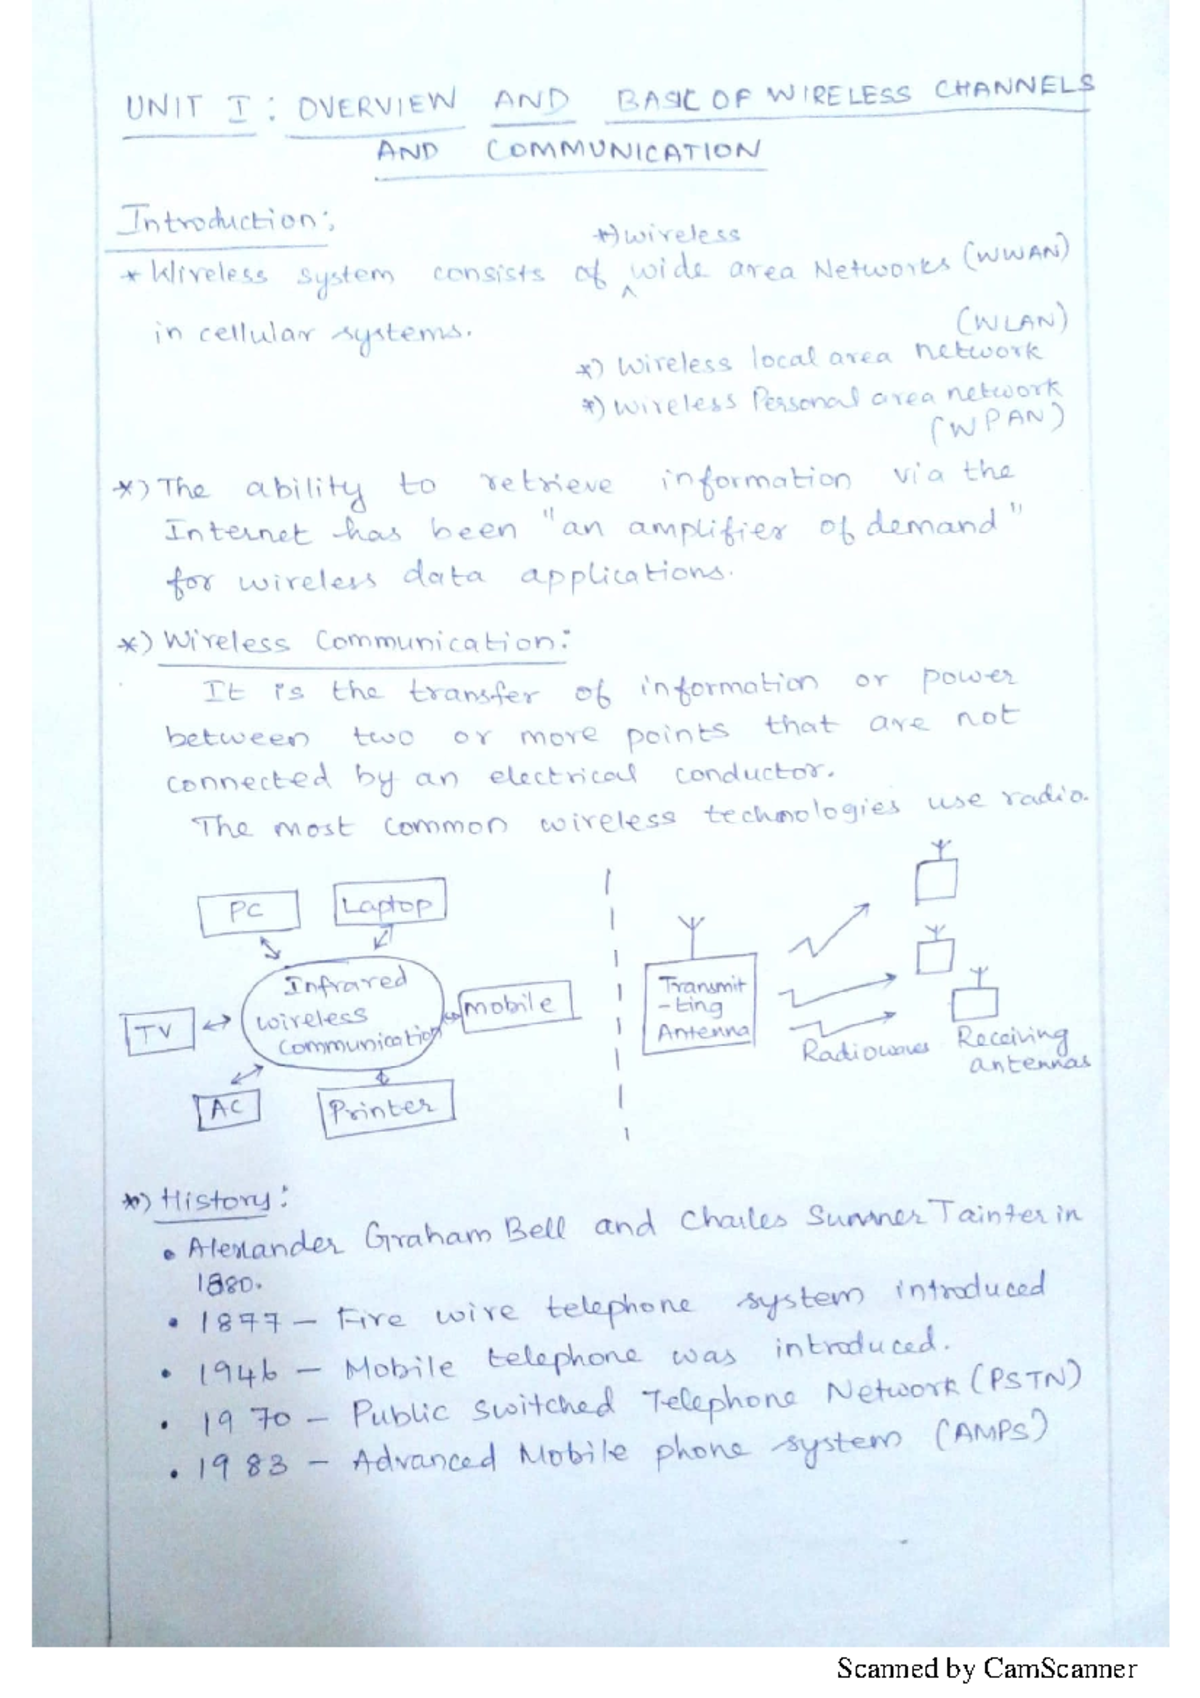 UNIT I : OVERVIEW AND BASIC OF WIRELESS CHANNELS
AND COMMUNICATION
Introduction:
*) wireless
* Wireless system consists of ^ wide area Networks (WWAN)
in cellular systems.
(WLAN)
*) Wireless local area network
*) Wireless Personal area network
(WPAN)
*) The ability to retrieve information via the
Internet has been "an amplifier of demand"
for wireless data applications.
*) Wireless Communication:
It is the transfer of information or power
between two or more points that are not
connected by an electrical conductor.
The most common wireless technologies use radio.
PC
Laptop
Infrared
wireless
communication
TV
mobile
AC
Printer
Transmit
-ting
Antenna
Radiowaves
Receiving
antennas
*) History:
• Alexander Graham Bell and Charles Sumner Tainter in
1880.
• 1877 – Fire wire telephone system introduced
• 1946 – Mobile telephone was introduced.
• 1970 – Public switched Telephone Network (PSTN)
• 1983 – Advanced Mobile phone system (AMPS)
Scanned by CamScanner